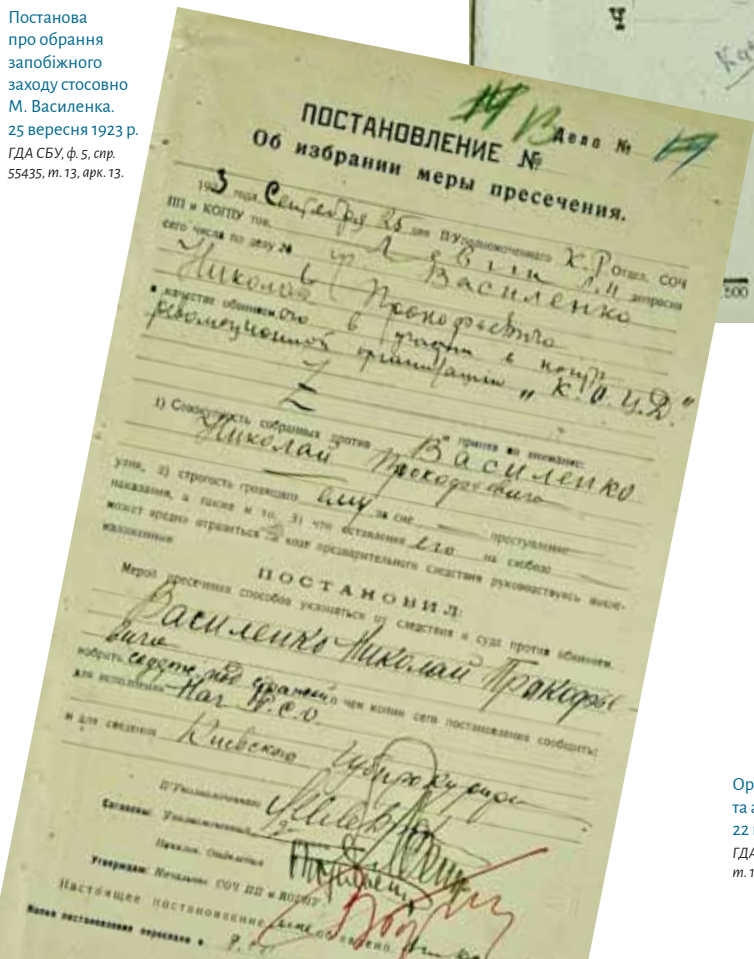 Постанова
про обрання
запобіжного
заходу стосовно
М. Василенка.
25 вересня 1923 р.
ГДА СБУ, ф. 5, спр.
55435, т. 13, арк. 13.
Ч
ПОСТАНОВЛЕНИЕ № 13 Дело №
Об избрании меры пресечения.
1923 года Сентября 25 дня П/Уполномоченного К.Р. Отдел. СОЧ
ПП и КОГПУ тов. Левин допросив
сего числа по делу № гр. Василенко
Николая Прокофьевича
в качестве обвиняемого в участии в контр
революционной организации „К.О.Ц.Д."
1) Совокупность собранных против Василенко принял во внимание:
Николай Прокофьевича
улик, 2) строгость грозящего ему за сие преступление
наказания, а также и то, 3) что оставление его на свободе
может вредно отразиться на ходе предварительного следствия руководствуясь выше-
изложенным
ПОСТАНОВИЛ:
Мерой пресечения способов уклониться от следствия и суда против обвиняем.
Василенко Николай Прокофье-
вича
избрать содерж. под стражей о чем копии сего постановления сообщить:
для исполнения Нач.
и для сведения Киевского Губпрокурора
П/Уполномоченный
Согласны: Уполномоченный
Начальн. Отделения
Утверждаю: Начальник СОЧ ПП и КОГПУ
Настоящее постановление мне объявлено
Копия постановления переслана в
500
Ор
та а
22
ГДА
т. 1